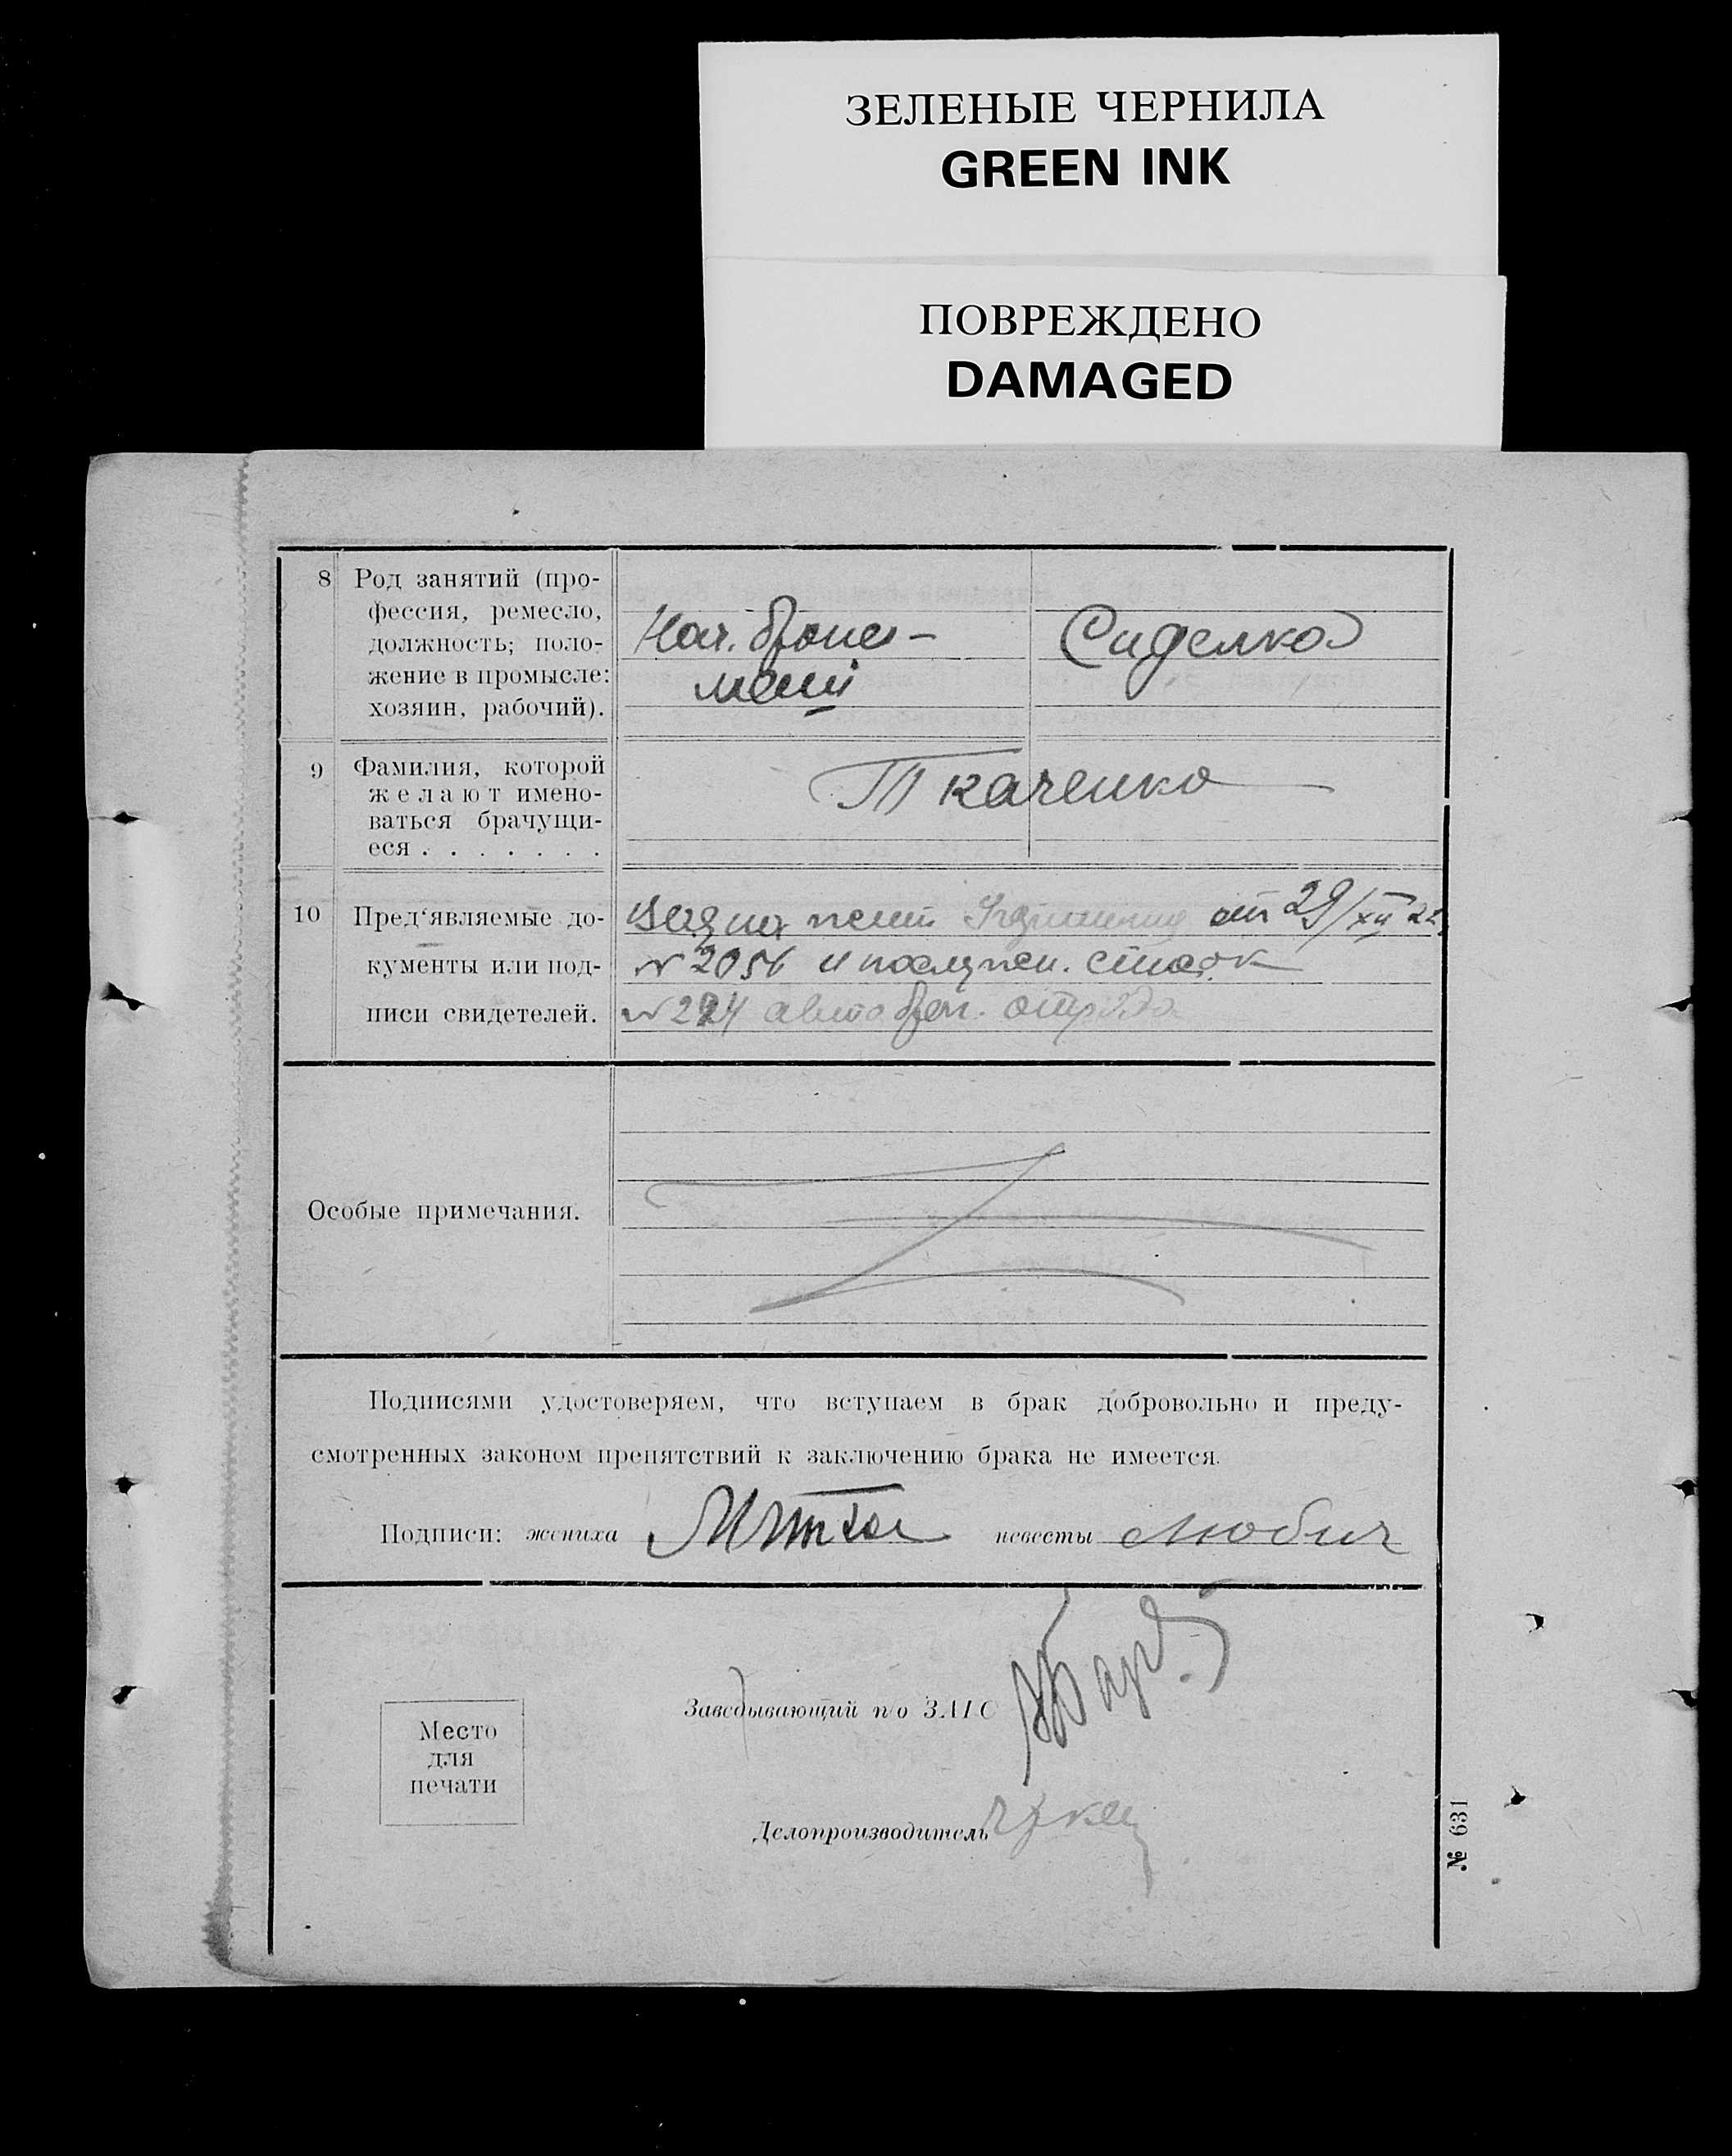 ЗЕЛЕНЫЕ ЧЕРНИЛА
GREEN INK
ПОВРЕЖДЕНО
DAMAGED
8 Род занятий (про-
фессия, ремесло,
должность; поло-
жение в промысле:
хозяин, рабочий).
Нач. броне-
маш
Сиделка
9 Фамилия, которой
желают имено-
ваться брачущи-
еся . . . . . . .
Ткаченко
10 Пред‘являемые до-
кументы или под-
писи свидетелей.
от 29/XII 22
№ 2056 и послужн. список
№ 224 авто брон. отряда
Особые примечания.
Подписями удостоверяем, что вступаем в брак добровольно и преду-
смотренных законом препятствий к заключению брака не имеется.
Подписи: жениха невесты Любич
Заведывающий п/о ЗАГС
Место
для
печати
Делопроизводитель
№ 631